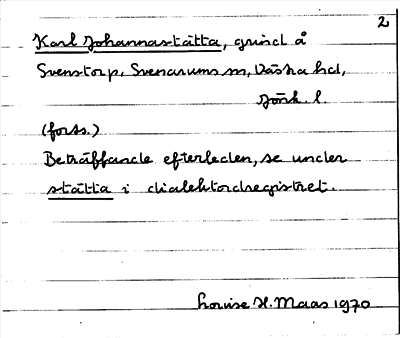 2
Karl Johannastätta, grind å
Svenstorp, Svenarums sn, Västra hd,
Jönk. l.
(forts.)
Beträffande efterleden, se under
stätta i dialektordregistret.
Louise H. Maas 1970